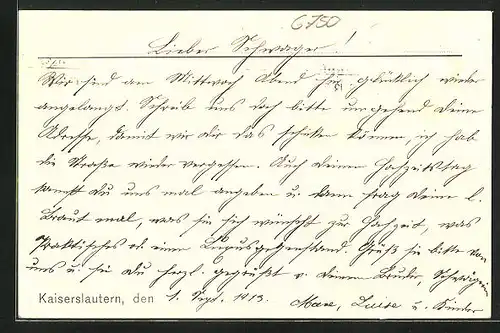 6750
Lieber Schwager!
Wir sind am Mittwoch Abend hier glücklich wieder
angelangt. Schreib uns doch bitte umgehend deine
Adresse, damit wir dir das schicken können, ich hab
die Straße wieder vergessen. Auch deinen Hochzeitstag
kannst du uns mal angeben u. dann frag deine l.
Braut mal, was sie sich wünscht zur Hochzeit, was
Praktisches od. einen Luxusgegenstand. Grüß sie bitte von
uns u. sei du herzl. gegrüßt v. deinem Bruder Schwägerin
Kaiserslautern, den 1. Sept. 1913. Max, Luise u. Kinder